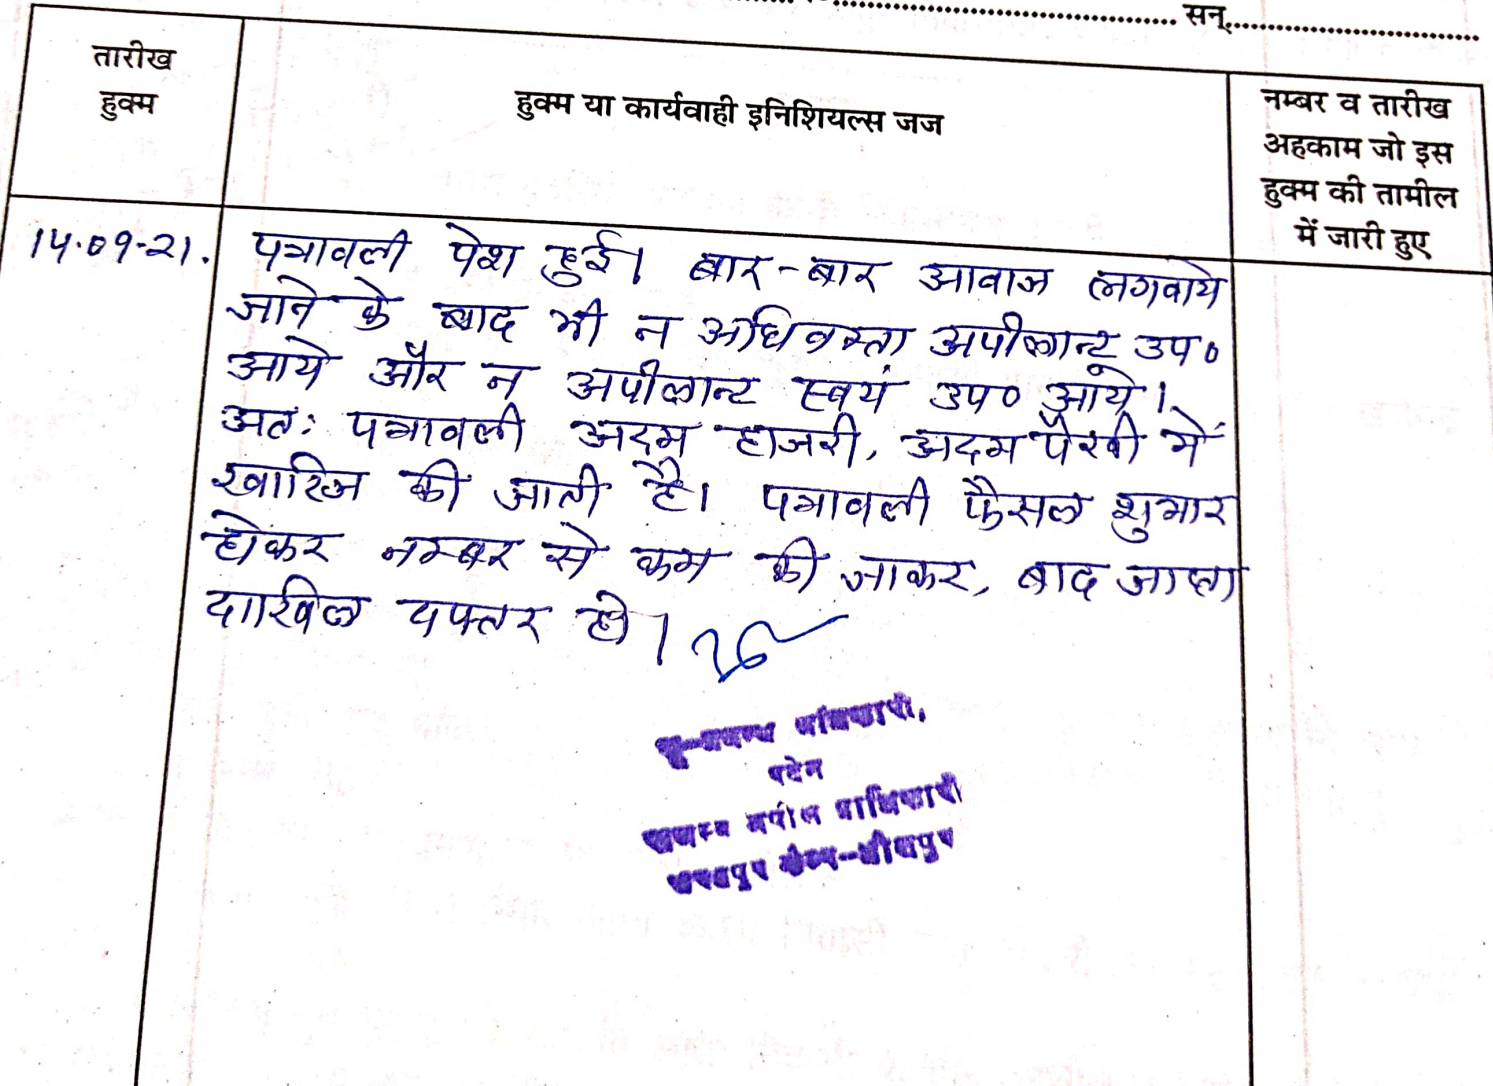 सन्
तारीख
हुक्म
हुक्म या कार्यवाही इनिशियल्स जज
नम्बर व तारीख
अहकाम जो इस
हुक्म की तामील
में जारी हुए
14.09.21. पत्रावली पेश हुई। बार-बार आवाज लगवाये
जाने के बाद भी न अधिवक्ता अपीलान्ट उप०
आये और न अपीलान्ट स्वयं उप० आये।
अतः पत्रावली अदम हाजरी, अदम पैरवी में
खारिज की जाती है। पत्रावली फैसल शुमार
होकर नम्बर से कम की जाकर, बाद जाप्ता
दाखिल दफ्तर हो।
भू-प्रबन्ध अधिकारी,
पदेन
राजस्व अपील प्राधिकारी